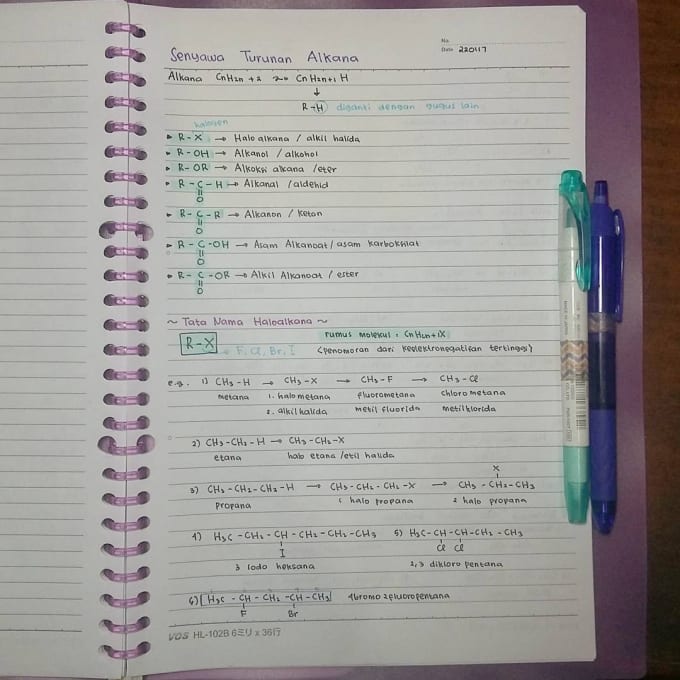 No.
Date 220117
Senyawa Turunan Alkana
Alkana CnH2n + 2 ~> CnH2n+1 H
↓
R-H diganti dengan gugus lain
halogen
▸ R - X → Halo alkana / alkil halida
▸ R - OH → Alkanol / alkohol
▸ R - OR → Alkoksi alkana / eter
▸ R - C - H → Alkanal / aldehid
||
O
▸ R - C - R → Alkanon / keton
||
O
▸ R - C - OH → Asam Alkanoat / asam karboksilat
||
O
▸ R - C - OR → Alkil Alkanoat / ester
||
O
~ Tata Nama Haloalkana ~
rumus molekul : CnH2n+1X
R-X → F, Cl, Br, I (penomoran dari keelektronegatifan tertinggi)
e.g. 1) CH3 - H → CH3 - X → CH3 - F → CH3 - Cl
metana 1. halo metana fluorometana chloro metana
2. alkil halida metil fluorida metil klorida
2) CH3 - CH2 - H → CH3 - CH2 - X
etana halo etana / etil halida
X
|
3) CH3 - CH2 - CH2 - H → CH3 - CH2 - CH2 - X → CH3 - CH2 - CH3
Propana 1 halo propana 2 halo propana
4) H3C - CH2 - CH - CH2 - CH2 - CH3 5) H3C - CH - CH - CH2 - CH3
| | |
I Cl Cl
3 Iodo heksana 2,3 dikloro pentana
6) H3C - CH - CH2 - CH - CH3 4bromo 2fluoropentana
| |
F Br
VOS HL-102B 6ミリ x 36行